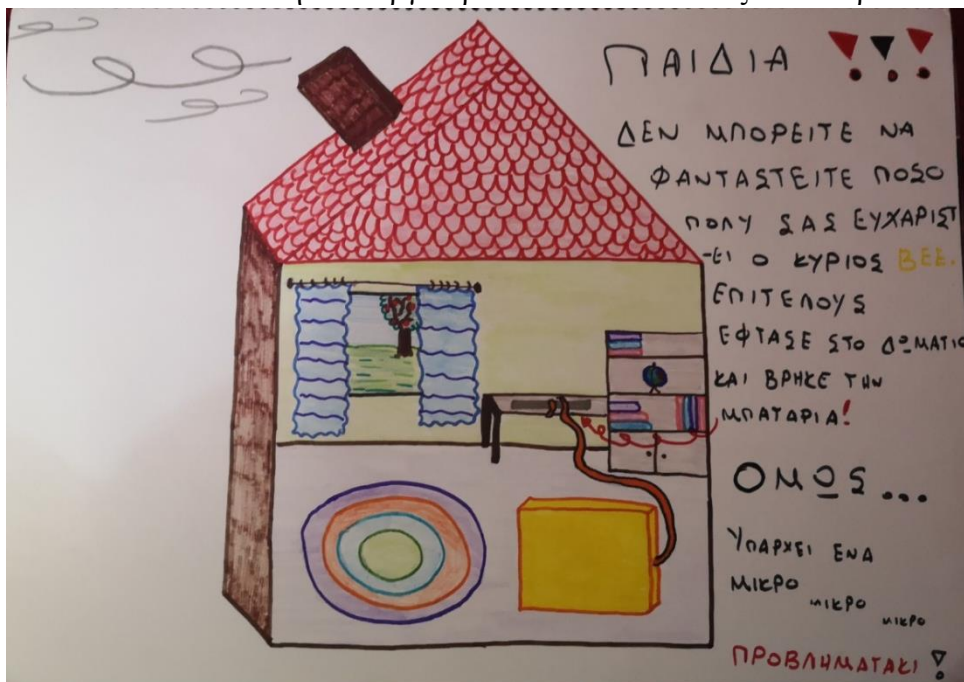 ΠΑΙΔΙΑ !!!
ΔΕΝ ΜΠΟΡΕΙΤΕ ΝΑ
ΦΑΝΤΑΣΤΕΙΤΕ ΠΟΣΟ
ΠΟΛΥ ΣΑΣ ΕΥΧΑΡΙΣΤ
-ΕΙ Ο ΚΥΡΙΟΣ ΒΕΕ.
ΕΠΙΤΕΛΟΥΣ
ΕΦΤΑΣΕ ΣΤΟ ΔΩΜΑΤΙΟ
ΚΑΙ ΒΡΗΚΕ ΤΗΝ
ΜΠΑΤΑΡΙΑ!
ΟΜΩΣ...
ΥΠΑΡΧΕΙ ΕΝΑ
ΜΙΚΡΟ ΜΙΚΡΟ ΜΙΚΡΟ
ΠΡΟΒΛΗΜΑΤΑΚΙ !